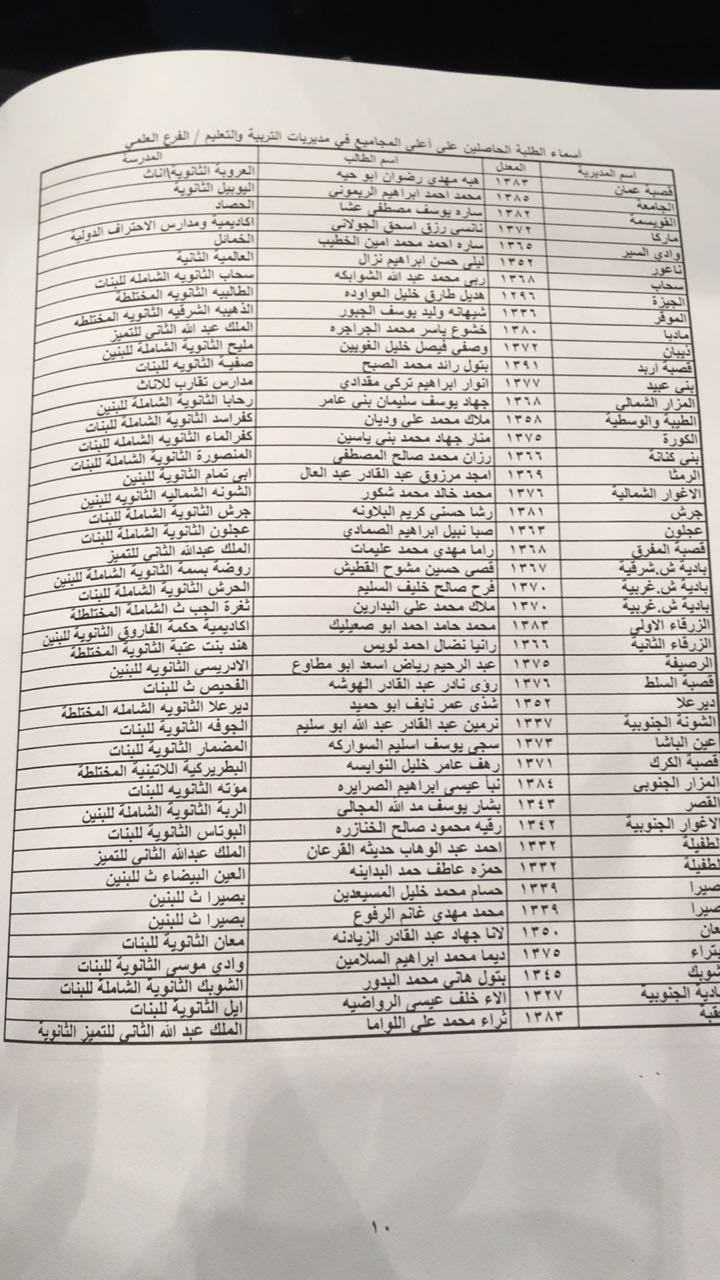 أسماء الطلبة الحاصلين على أعلى المجاميع في مديريات التربية والتعليم / الفرع العلمي
اسم المديرية المعدل اسم الطالب المدرسة
قصبة عمان ١٣٨٣ هبه مهدي رضوان ابو حيه العروبة الثانوية\اناث
الجامعة ١٣٨٥ محمد احمد ابراهيم الريموني اليوبيل الثانوية
القويسمة ١٣٨٢ ساره يوسف مصطفى عشا الحصاد
ماركا ١٣٧٢ نانسي رزق اسحق الجولاني اكاديمية ومدارس الاحتراف الدولية
وادي السير ١٣٦٥ ساره احمد محمد امين الخطيب الخمائل
ناعور ١٣٥٢ ليلى حسن ابراهيم نزال العالمية الثانية
سحاب ١٣٦٨ ربى محمد عبد الله الشوابكه سحاب الثانويه الشامله للبنات
الجيزة ١٢٩٦ هديل طارق خليل العواوده الطالبيه الثانويه المختلطة
الموقر ١٣٣٦ شيهانه وليد يوسف الجبور الذهيبه الشرقيه الثانويه المختلطه
مادبا ١٣٨٠ خشوع ياسر محمد الجراجره الملك عبد الله الثاني للتميز
ذيبان ١٣٧٢ وصفي فيصل خليل الغويين مليح الثانوية الشاملة للبنين
قصبة اربد ١٣٩١ بتول رائد محمد الصبح صفية الثانويه للبنات
بني عبيد ١٣٧٧ انوار ابراهيم تركي مقدادي مدارس تقارب للاناث
المزار الشمالي ١٣٦٨ جهاد يوسف سليمان بني عامر رحابا الثانوية الشاملة للبنين
الطيبة والوسطية ١٣٥٨ ملاك محمد علي وديان كفراسد الثانوية الشاملة للبنات
الكورة ١٣٧٥ منار جهاد محمد بني ياسين كفرالماء الثانويه الشامله للبنات
بني كنانة ١٣٦٦ رزان محمد صالح المصطفى المنصورة الثانوية الشاملة للبنات
الرمثا ١٣٦٩ امجد مرزوق عبد القادر عبد العال ابي تمام الثانوية للبنين
الاغوار الشمالية ١٣٧٦ محمد خالد محمد شكور الشونه الشماليه الثانويه للبنين
جرش ١٣٨١ رشا حسني كريم البلاونه جرش الثانوية الشاملة للبنات
عجلون ١٣٦٣ صبا نبيل ابراهيم الصمادي عجلون الثانوية الشاملة للبنات
قصبة المفرق ١٣٦٨ راما مهدي محمد عليمات الملك عبدالله الثاني للتميز
بادية ش.شرقية ١٣٦٧ قصي حسين مشوح القطيش روضة بسمة الثانوية الشاملة للبنين
بادية ش.غربية ١٣٧٠ فرح صالح خليف السليم الحرش الثانوية الشاملة للبنات
بادية ش.غربية ١٣٧٠ ملاك محمد علي البدارين ثغرة الجب ث الشاملة المختلطة
الزرقاء الاولى ١٣٨٣ محمد حامد احمد ابو صعيليك اكاديمية حكمة الفاروق الثانوية للبنين
الزرقاء الثانية ١٣٦٦ رانيا نضال احمد لويس هند بنت عتبة الثانوية المختلطة
الرصيفة ١٣٧٥ عبد الرحيم رياض اسعد ابو مطاوع الادريسي الثانويه للبنين
قصبة السلط ١٣٧٦ رؤى نادر عبد القادر الهوشه الفحيص ث للبنات
ديرعلا ١٣٥٢ شذى عمر نايف ابو حميد ديرعلا الثانويه الشامله المختلطة
الشونة الجنوبية ١٣٣٧ نرمين عبد القادر عبد الله ابو سليم الجوفه الثانوية للبنات
عين الباشا ١٣٧٣ سجى يوسف اسليم السواركه المضمار الثانوية للبنات
قصبة الكرك ١٣٧١ رهف عامر خليل النوايسه البطريركية اللاتينية المختلطة
المزار الجنوبي ١٣٨٤ نبأ عيسى ابراهيم الصرايره مؤته الثانويه للبنات
القصر ١٣٤٣ بشار يوسف مد الله المجالي الربة الثانوية الشاملة للبنين
الاغوار الجنوبية ١٣٤٢ رقيه محمود صالح الخنازره البوتاس الثانوية للبنات
لطفيلة ١٣٣٢ احمد عبد الوهاب حديثه القرعان الملك عبدالله الثاني للتميز
لطفيلة ١٣٣٢ حمزه عاطف حمد البداينه العين البيضاء ث للبنين
صيرا ١٣٣٩ حسام محمد خليل المسيعدين بصيرا ث للبنين
صيرا ١٣٣٩ محمد مهدي غانم الرفوع بصيرا ث للبنين
عان ١٣٥٠ لانا جهاد عبد القادر الزيادنه معان الثانوية للبنات
بتراء ١٣٧٥ ديما محمد ابراهيم السلامين وادي موسى الثانوية للبنات
شوبك ١٣٤٥ بتول هاني محمد البدور الشوبك الثانوية الشاملة للبنات
بادية الجنوبية ١٣٢٧ الاء خلف عيسى الرواضيه ايل الثانوية للبنات
قبة ١٣٨٣ ثراء محمد علي اللواما الملك عبد الله الثاني للتميز الثانوية
١٠